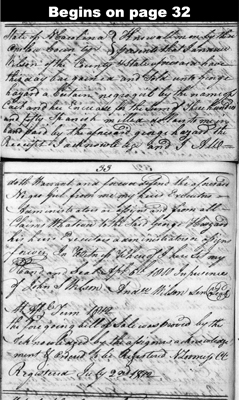 Begins on page 32
State of
these presents that I Andrew
Wilson of the County & State aforesaid have
this day bargained and Sold unto George
hazard a Certain negro girl by the name of
and her increase for the Sum of three hundred
and fifty Spanish milled dollars to me in
hand paid by the aforesaid george hazard the
Receipt I acknowledge and I Also
33
doth Warrant and forever defend the aforesaid
Negro girl from me my heirs Executors
Administrators or assigns and from all
Claims whatever to the said George Hazard
his heirs Executors administrators or assigns
forever In Witness Whereof I have Set my
Hand and Seal 1811 In presence
of John Wilson Andw Wilson Senr Seal
Term 1812
the foregoing bill of Sale was proved by the
acknowledgement
& Ordered to be Registered
Registered July 2nd 1812